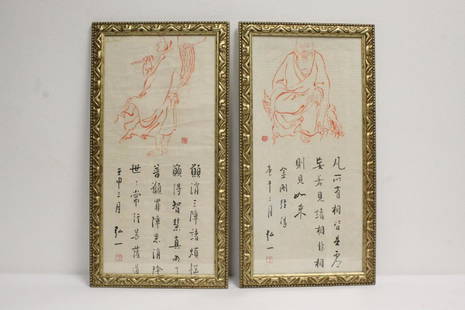 願消三障諸煩惱
願得智慧真明了
普願罪障悉消除
世々常行菩薩道
壬申二月 弘一
凡所有相皆是虛
妄若見諸相非相
則見如來
金剛經偈
庚午二月 弘一